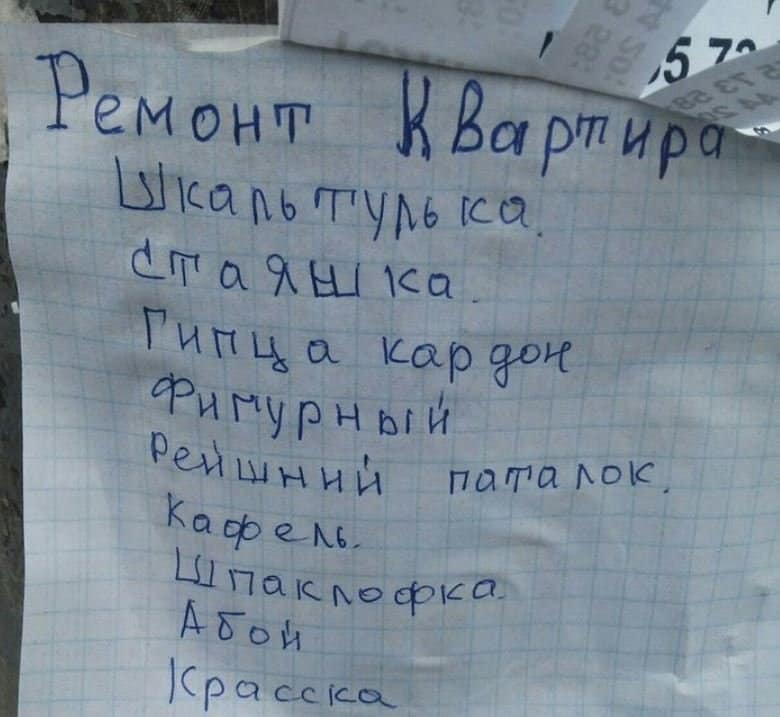 5 73
Ремонт Квартира
Шкальтулька.
Стаяшка.
Гипца кардон
Фигурный
Рейшний паталок.
Кафель.
Шпаклофка.
Абой
Красска